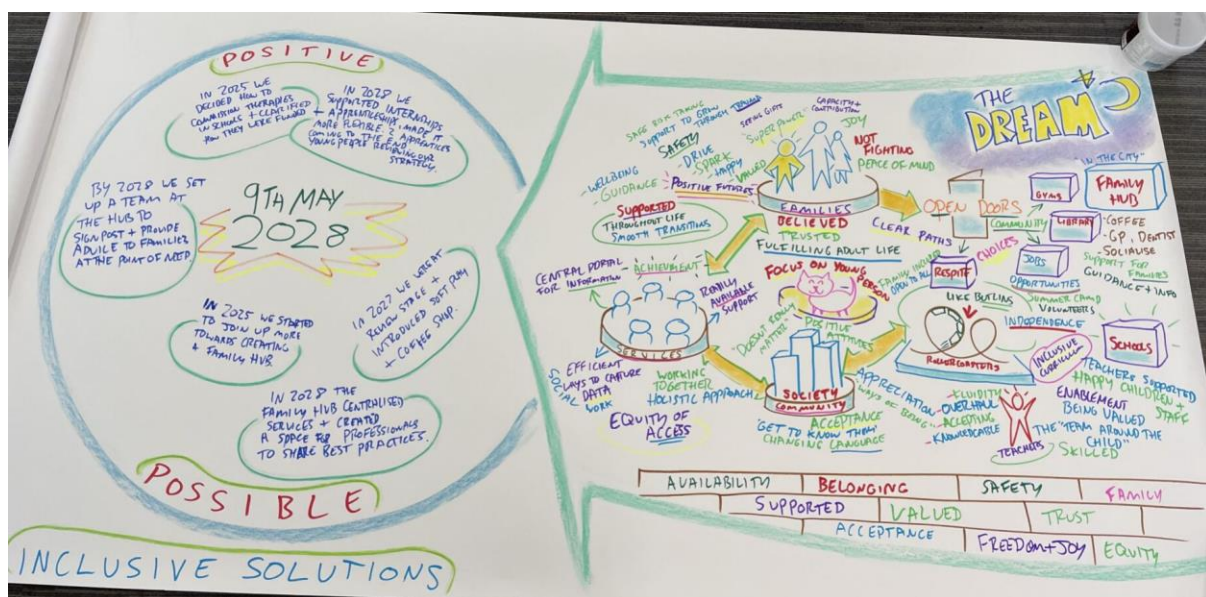 POSITIVE
IN 2025 WE
DECIDED HOW TO
COMMISSION THERAPIES
IN SCHOOLS + CLARIFIED
HOW THEY WERE FUNDED
IN 2028 WE
SUPPORTED INTERNSHIPS
+ APPRENTICESHIPS, MADE IT
MORE FLEXIBLE. 2 APPRENTICES
COMING TO THE END,
YOUNG PEOPLE REVIEWING OUR
STRATEGY.
BY 2028 WE SET
UP A TEAM AT
THE HUB TO
SIGNPOST + PROVIDE
ADVICE TO FAMILIES
AT THE POINT OF NEED
9TH MAY
2028
IN 2025 WE STARTED
TO JOIN UP MORE
TOWARDS CREATING
A FAMILY HUB.
IN 2027 WE WERE AT
REVIEW STAGE +
INTRODUCED SOFT PLAY
+ COFFEE SHIP.
IN 2028 THE
FAMILY HUB CENTRALISED
SERVICES + CREATED
A SPACE FOR PROFESSIONALS
TO SHARE BEST PRACTICES.
POSSIBLE
INCLUSIVE SOLUTIONS
THE
DREAM
SAFE RISK TAKING
SUPPORT TO GROW
THROUGH TRAUMA
SAFETY
- DRIVE
SPARK
- HAPPY
VALUED
SEEING GIFTS
SUPER POWER
CAPACITY +
CONTRIBUTION
JOY
NOT
FIGHTING
PEACE OF MIND
- WELLBEING
- GUIDANCE
POSITIVE FUTURES
SUPPORTED
THROUGHOUT LIFE
SMOOTH TRANSITIONS
FAMILIES
BELIEVED
TRUSTED
FULFILLING ADULT LIFE
CLEAR PATHS
OPEN DOORS
"IN THE CITY"
FAMILY
HUB
GYMS
COMMUNITY
LIBRARY
JOBS
OPPORTUNITIES
- COFFEE
- GP, DENTIST
- SOCIALISE
SUPPORT FOR
FAMILIES
GUIDANCE + INFO
CHOICES
RESPITE
FAMILY INCLUDED
OPEN TO ALL
CENTRAL PORTAL
FOR INFORMATION
- ACHIEVEMENT -
READILY
AVAILABLE
SUPPORT
SERVICES
EFFICIENT
WAYS TO CAPTURE
DATA
SOCIAL
WORK
WORKING
TOGETHER
HOLISTIC APPROACH
EQUITY OF
ACCESS
FOCUS ON YOUNG
PERSON
"DOESN'T REALLY
MATTER"
POSITIVE
ATTITUDES
SOCIETY
COMMUNITY
ACCEPTANCE
"GET TO KNOW THEM"
CHANGING LANGUAGE
APPRECIATION
WAYS OF BEING
LIKE BUTLINS
SUMMER CAMP
VOLUNTEERS
INDEPENDENCE
ROLLERCOASTERS
INCLUSIVE
CURRICULUM
SCHOOLS
- FLUIDITY
- OVERHAUL
- ACCEPTING
- KNOWLEDGABLE
TEACHERS
SKILLED
TEACHERS SUPPORTED
HAPPY CHILDREN +
STAFF
ENABLEMENT
BEING VALUED
THE "TEAM AROUND THE
CHILD"
AVAILABILITY
BELONGING
SAFETY
FAMILY
SUPPORTED
VALUED
TRUST
ACCEPTANCE
FREEDOM + JOY
EQUITY